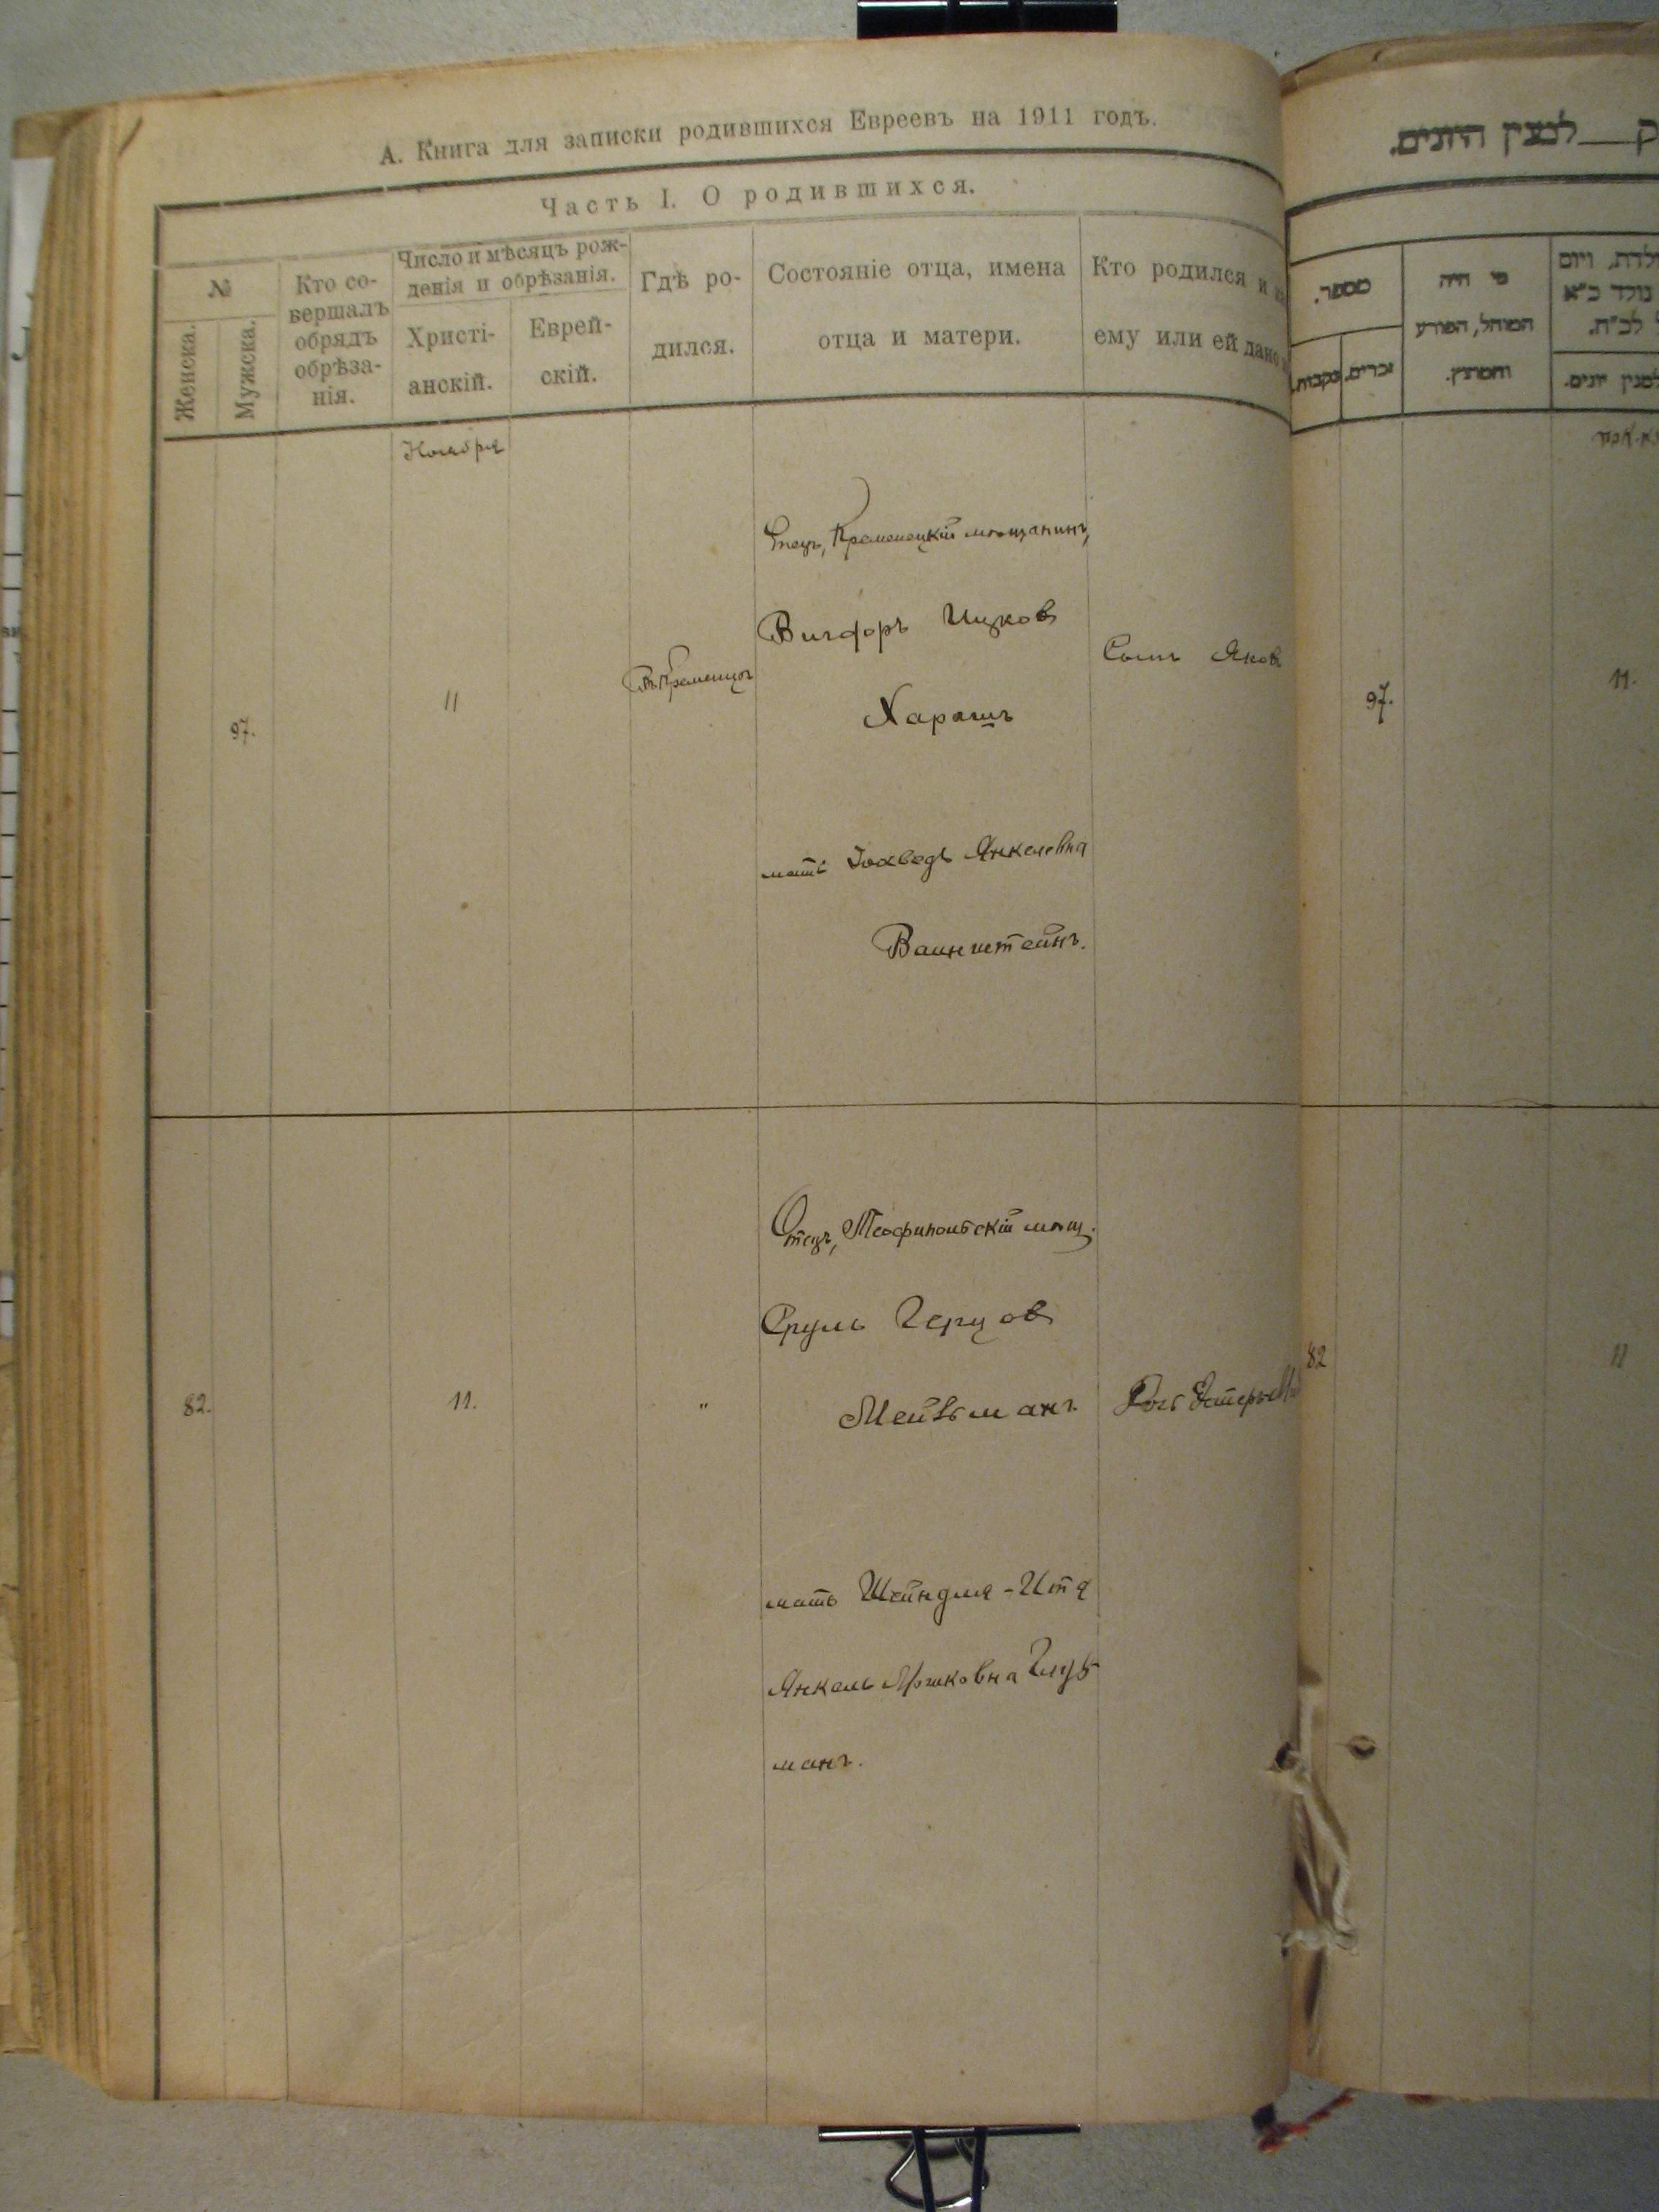 А. Книга для записки родившихся Евреевъ на 1911 годъ.
Часть I. О родившихся.
№
Женска.
Мужска.
Кто со-
вершалъ
обрядъ
обрѣза-
нія.
Число и мѣсяцъ рож-
денія и обрѣзанія.
Христі-
анскій.
Еврей-
скій.
Гдѣ ро-
дился.
Состояніе отца, имена
отца и матери.
Кто родился и
ему или ей дано
Ноября
97.
11
Въ Кременцѣ
Отецъ, Кременецкій мѣщанинъ,
Вигдоръ Ицков
Харашъ
мать Іохведъ Янкелевна
Ваинштейнъ.
Сынъ Яков
82.
11.
"
Отецъ, Теофипольскій мѣщ.
Сруль Герцов
мать Шейндля-Ита
Янкель Мошковна
манъ.
Дочь
למנין היונים.
מספר.
זכרים.
נקבות.
מי היה
המוהל, הפורע
והמוצץ.
ויום
נולד כ"א
לב"ח.
למנין יונים.
97.
11.
82
11